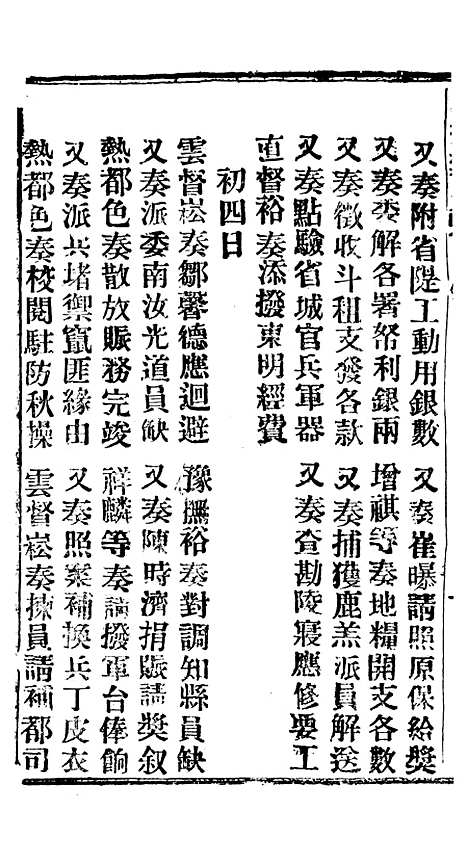 又奏附省隄工動用銀數　又奏崔曝請照原保給獎
又奏委解各署帑利銀兩　增祺等奏地糧開支各數
又奏徵收斗租支發各款　又奏捕獲鹿羔派員解送
又奏點驗省城官兵軍器　又奏查勘陵寢應修要工
直督裕奏添撥東明經費
初四日
雲督崧奏鄒馨德應迴避　豫撫裕奏對調知縣員缺
又奏派委南汝光道員缺　又奏陳時濟捐賑請獎叙
熱都色奏散放賑務完竣　祥麟等奏請撥軍台俸餉
又奏派兵堵禦竄匪緣由　又奏照案補換兵丁皮衣
熱都色奏校閱駐防秋操　雲督崧奏揀員請補都司